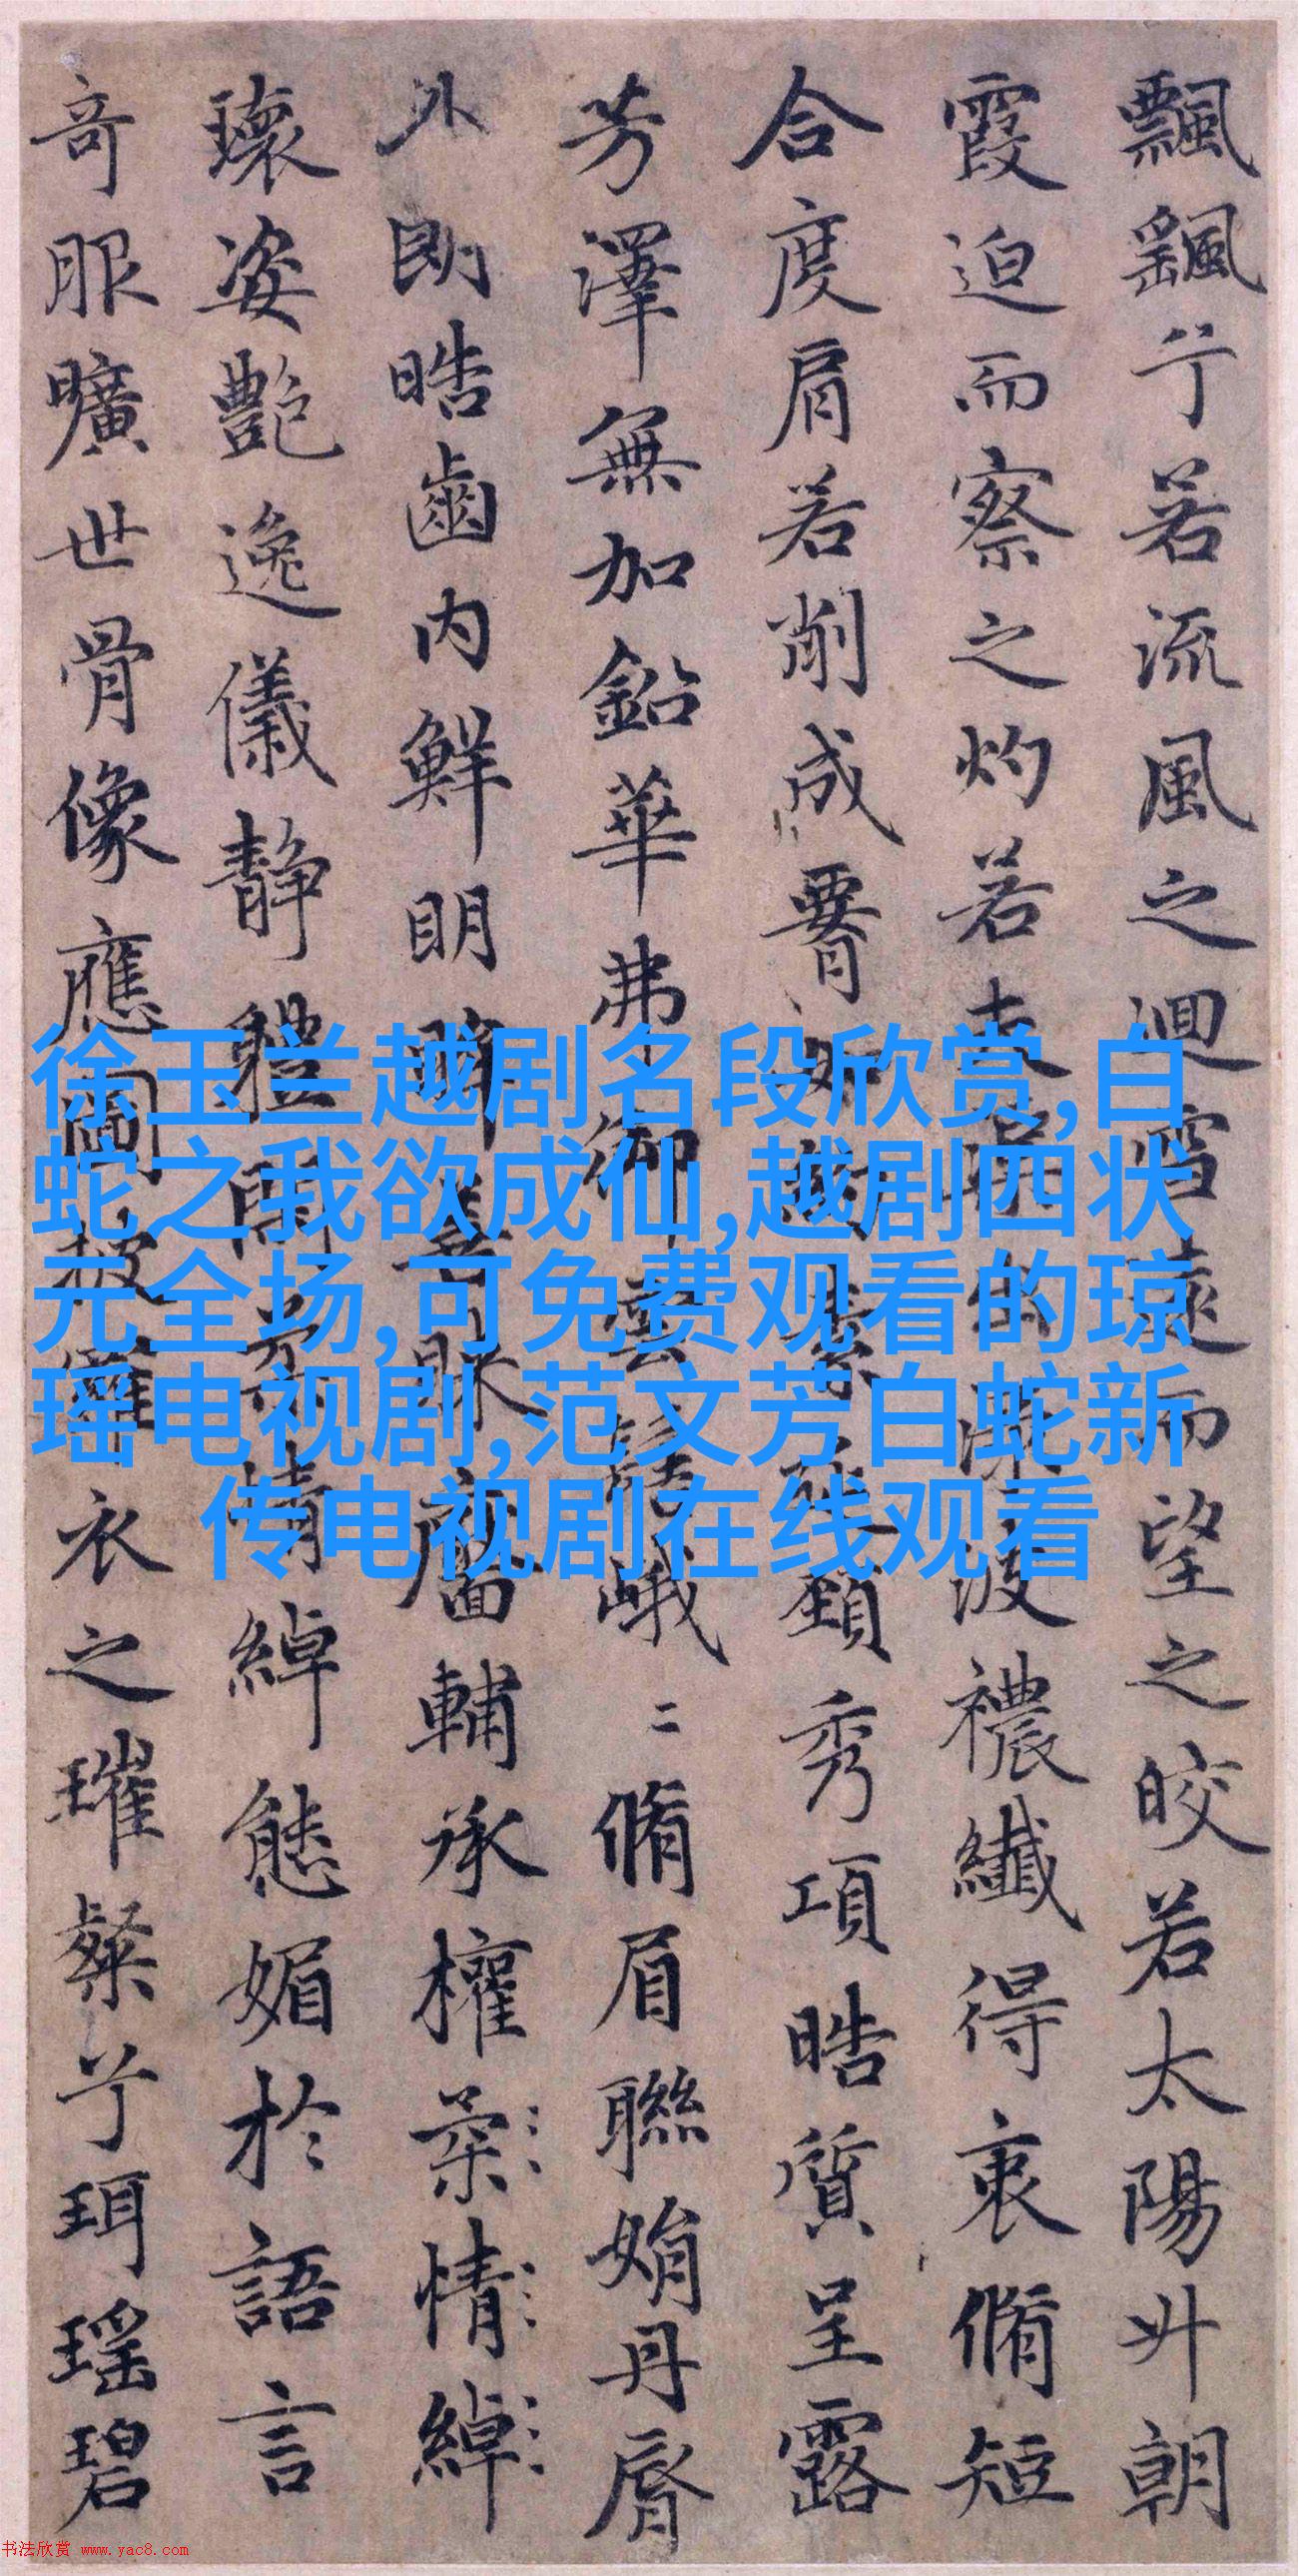 飄飖兮若流風之迴雪遠而望之皎若太陽升朝
霞迫而察之灼若芙蕖出淥波禯纖得衷脩短
合度肩若削成䙅如約素延頸秀項皓質呈露
芳澤無加鉛華弗御雲髻峨二脩眉聯娟丹脣
外朗皓齒內鮮明眸善睞靨輔承權柔情綽
瓌姿艷逸儀靜體閑柔情綽態媚於語言
奇服曠世骨像應圖披羅衣之璀粲兮珥瑤碧
徐玉兰越剧名段欣赏,白
蛇之我欲成仙,越剧四状
元全场,可免费观看的琼
瑶电视剧,范文芳白蛇新
传电视剧在线观看
书法欣赏 www.yac8.com